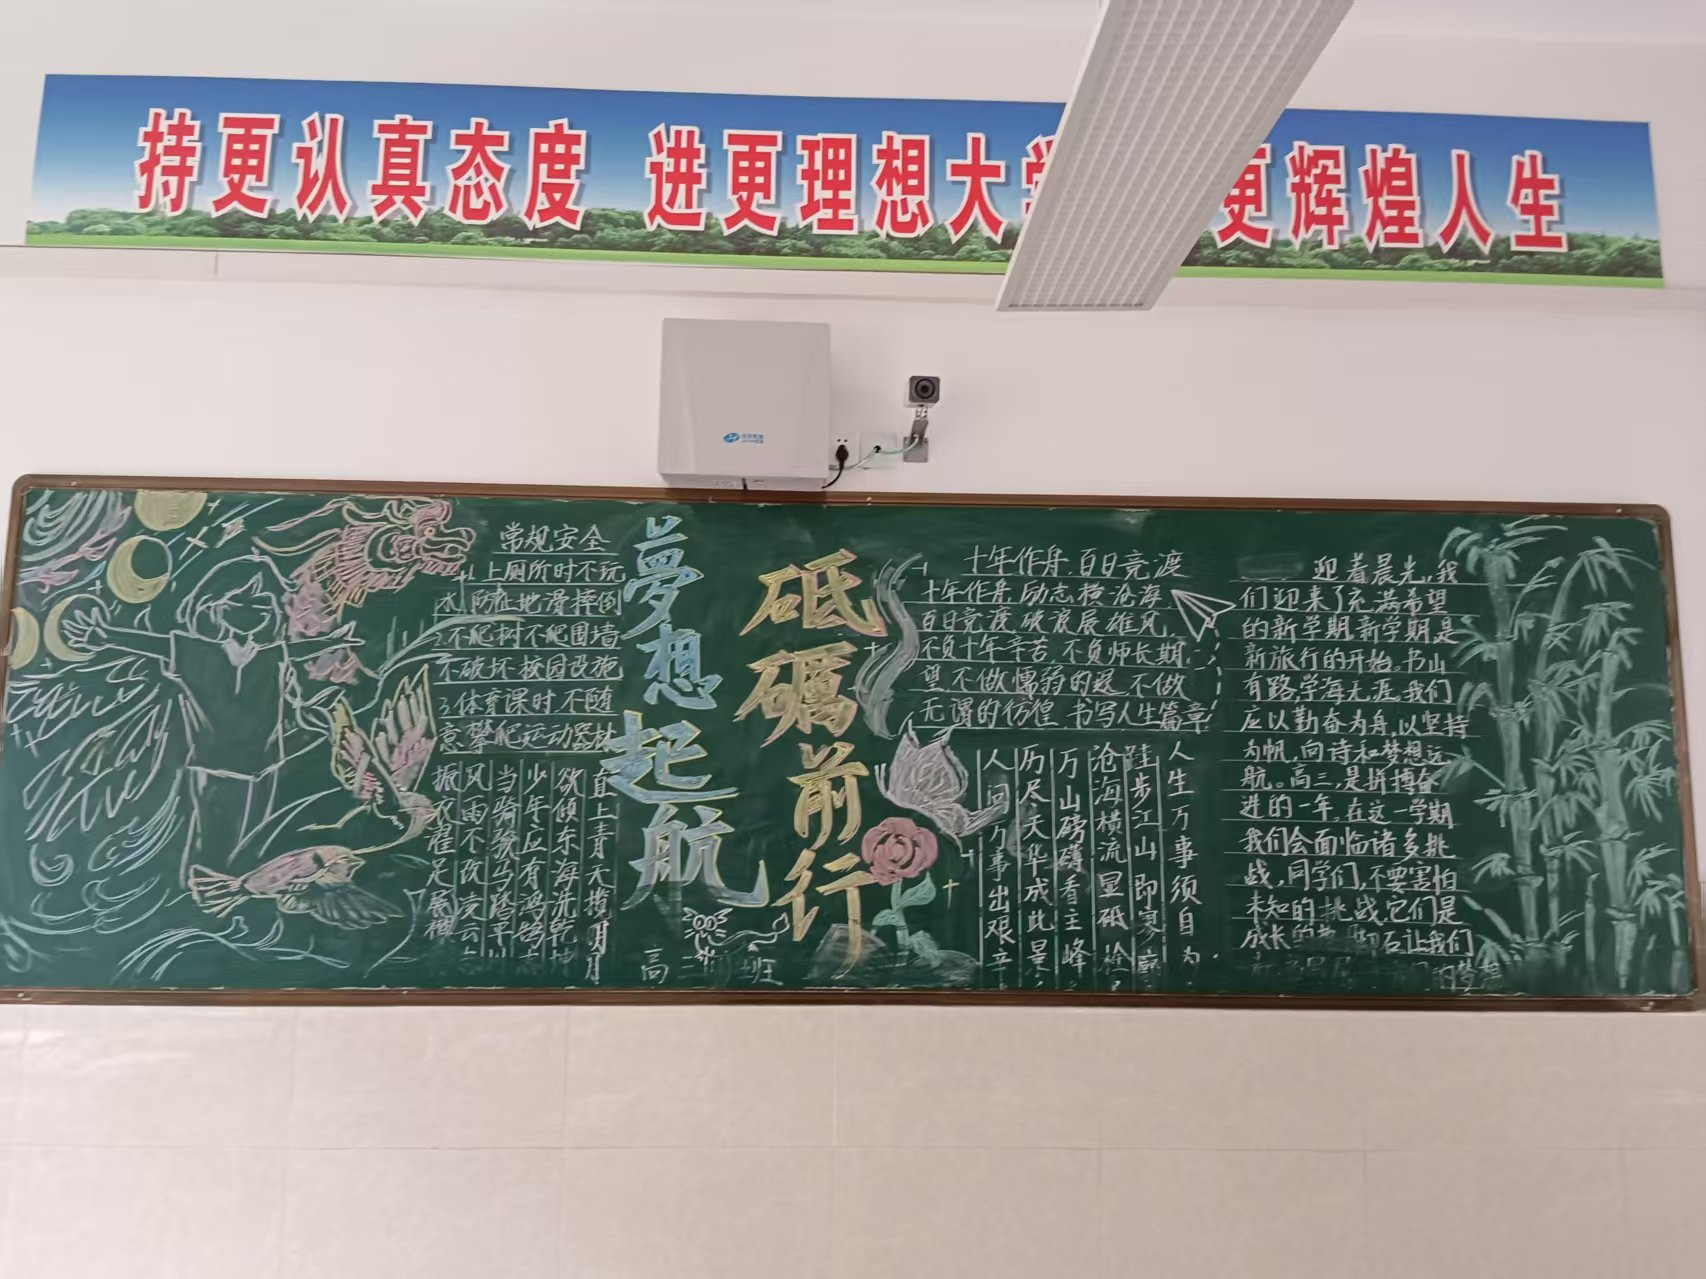 持更认真态度 进更理想大 更辉煌人生
常规安全
1.上厕所时不玩
水,防止地滑摔倒
2.不爬树不爬围墙
不破坏校园设施
3.体育课时,不随
意攀爬运动器材
直上青天揽明月
欲倾东海洗乾坤
少年应有鸿鹄
当骑骏马踏平
风雨不改凌云
振衣濯足展
梦想起航
砥砺前行
高三 班
十年作舟,百日竞渡
十年作舟,励志横沧海,
百日竞渡,破浪展雄风,
不负十年辛苦,不负师长期
望,不做懦弱的退,不做
无谓的彷徨,书写人生篇章!
人生万事须自为,
跬步江山即寥廓
沧海横流显砥
万山磅礴看主峰
历尽天华成此景
人间万事出艰辛
迎着晨光,我
们迎来了充满希望
的新学期,新学期是
新旅行的开始。书山
有路,学海无涯,我们
应以勤奋为舟,以坚持
为帆,向诗和梦想远
航。高三,是拼搏奋
进的一年。在这一学期
我们会面临诸多挑
战,同学们,不要害怕
未知的挑战,它们是
成长的 石让我们
的梦想